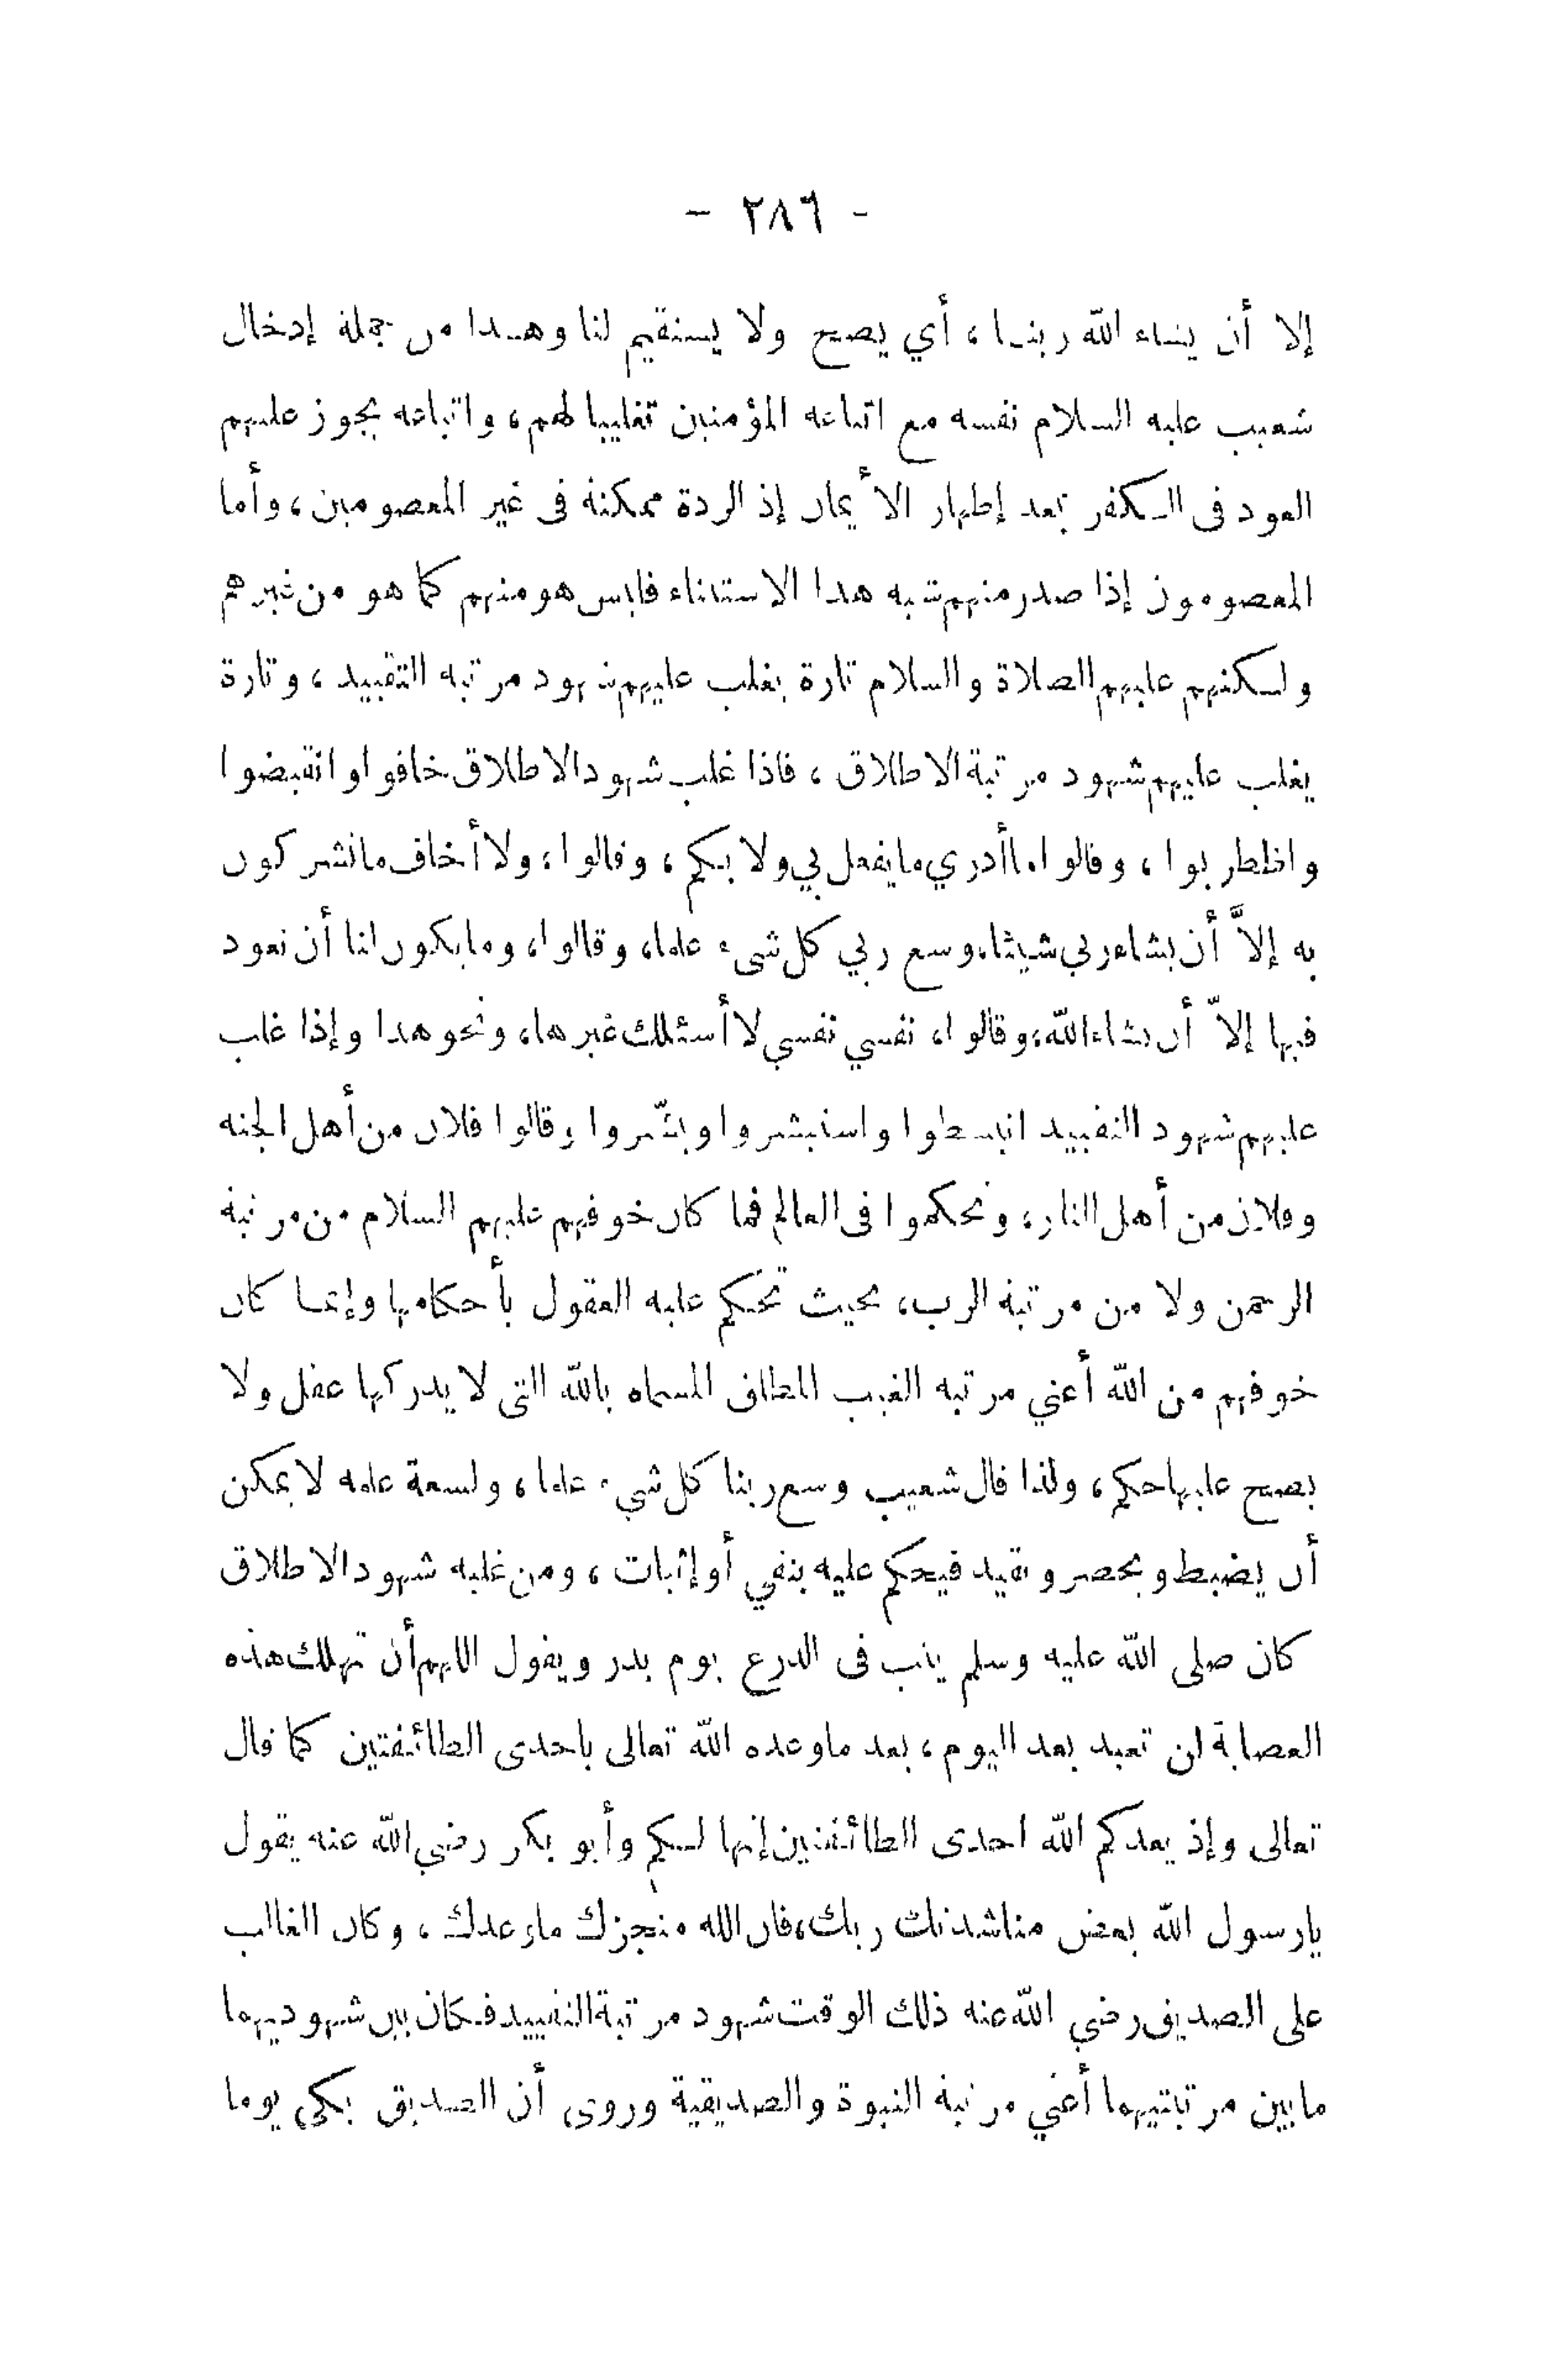 - ٢٨٦ -
إلا أن يشاء الله ربنـا ، أي يصح ولا يستقيم لنا وهـذا من جملة إدخال
شعيب عليه السلام نفسه مع اتباعه المؤمنين تغليبا لهم، واتباعه يجوز عليهم
العود فى الـكفر بعد إظهار الأيمان إذ الردة ممكنة فى غير المعصومين ، وأما
المعصومون إذا صدر منهم شبه هذا الاستثناء فليس هو منهم كما هو من غيرهم
ولـكنهم عليهم الصلاة والسلام تارة يغلب عليهم شهود مرتبة التقييد ، وتارة
يغلب عليهم شهود مرتبة الاطلاق ، فاذا غلب شهود الاطلاق خافوا وانقبضوا
واظطربوا ، وقالوا ما أدري ما يفعل بي ولا بـكم ، وقالوا ، ولا أخاف ما تشركون
به إلاَّ أن يشاء ربي شيئا، وسع ربي كل شىء علما، وقالوا، وما يكون لنا أن نعود
فيها إلاّ أن يشاء الله، وقالوا، نفسي نفسي لا أسئلك غيرها، ونحو هذا وإذا غلب
عليهم شهود التقييد انبسطوا واستبشروا وبشّروا وقالوا فلان من أهل الجنه
وفلان من أهل النار، وتحكموا فى العالم فما كان خوفهم عليهم السلام من مرتبة
الرحمن ولا من مرتبة الرب، بحيث تحكم عليه العقول بأحكامها وإنمـا كان
خوفهم من الله أعني مرتبه الغيب المطلق المسماه بالله التى لا يدركها عقل ولا
يصح عليها حكم ، ولذا قال شعيب وسع ربنا كل شيء علما ، ولسعة علمه لا يمكن
أن يضبط ويحصر ويقيد فيحكم عليه بنفي أو إثبات ، ومن غلبه شهود الاطلاق
كان صلى الله عليه وسلم يثب فى الدرع يوم بدر ويقول اللهم أن تهلك هذه
العصابة لن تعبد بعد اليوم ، بعد ما وعده الله تعالى باحدى الطائفتين كما قال
تعالى وإذ يعدكم الله احدى الطائفتين إنها لـكم وأبو بكر رضي الله عنه يقول
يارسول الله بعض مناشدتك ربك، فان الله منجزك ما وعدك ، وكان الغالب
على الصديق رضي الله عنه ذلك الوقت شهود مرتبة التقييد فـكان بين شهوديهما
ما بين مرتبتيهما أعني مرتبة النبوة والصديقية وروى أن الصديق بكى يوما